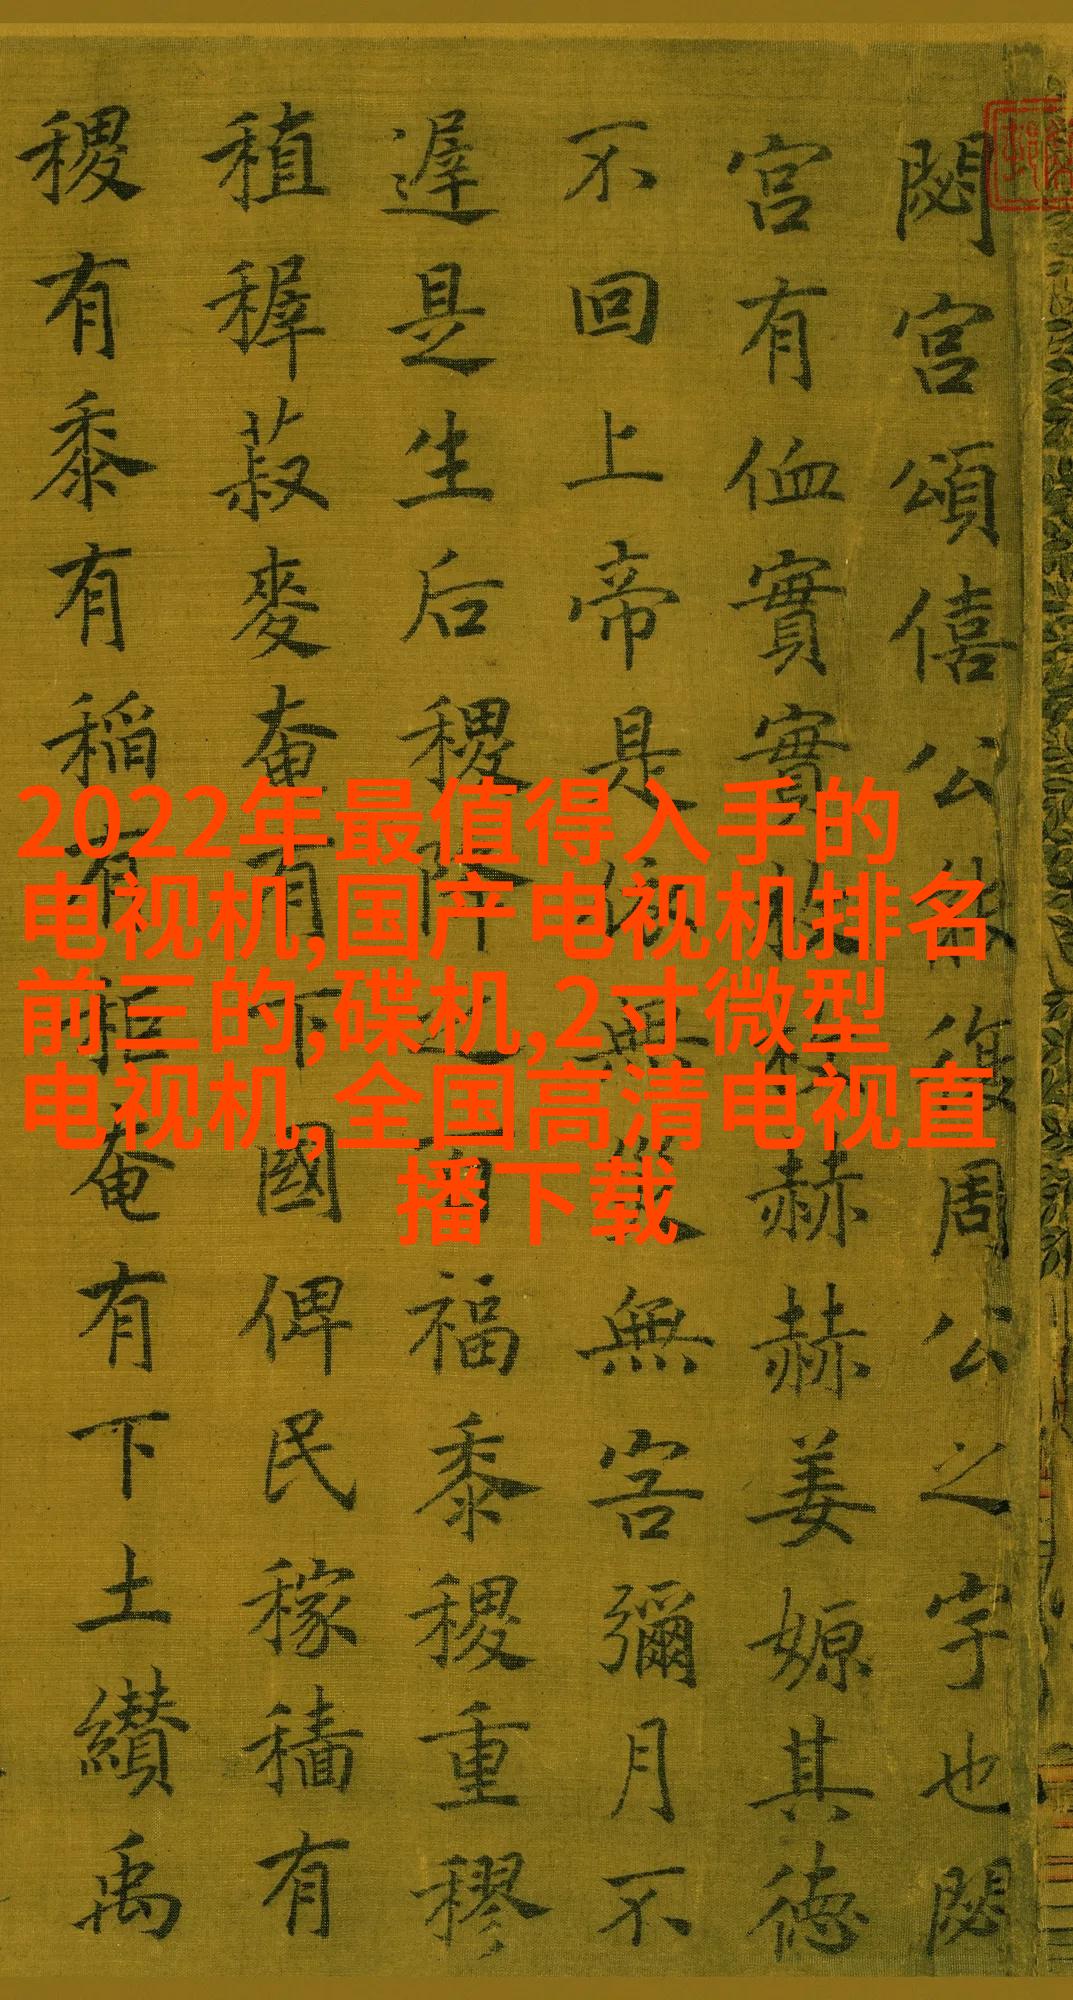 閟宮頌僖公能復周公之宇也閟
宮有侐實實枚枚赫赫姜嫄其德
不回上帝是依無災無害彌月不
遲是生后稷降之百福黍稷重穋
稙稺菽麥奄有下國俾民稼穡有
稷有黍有稻有秬奄有下土纘禹
2022年最值得入手的
电视机,国产电视机排名
前三的,碟机,2寸微型
电视机,全国高清电视直
播下载